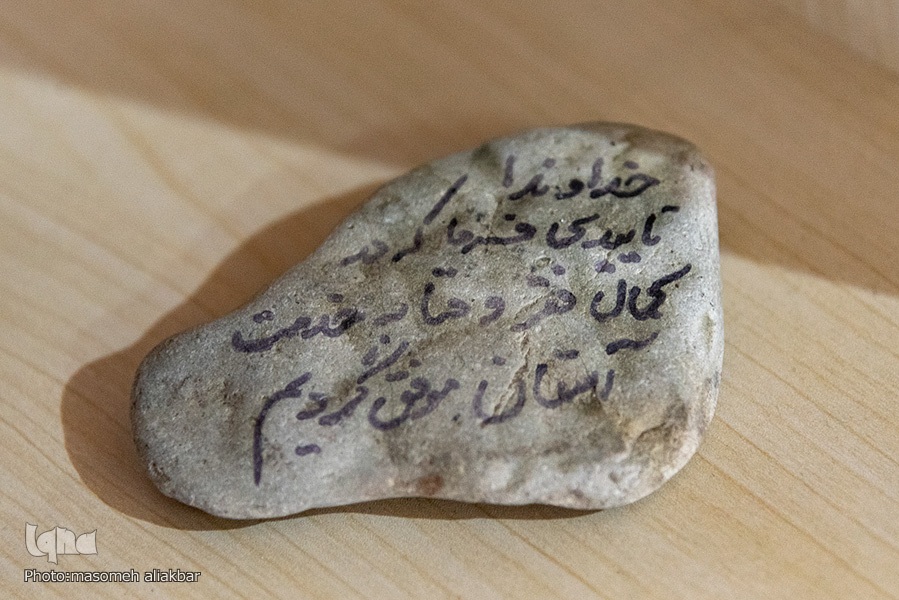 خداوندا
تاییدی فرما که در
کمال فقر و فنا به خدمت
آستان موفق گردیم
Iqna
Photo:masomeh aliakbar